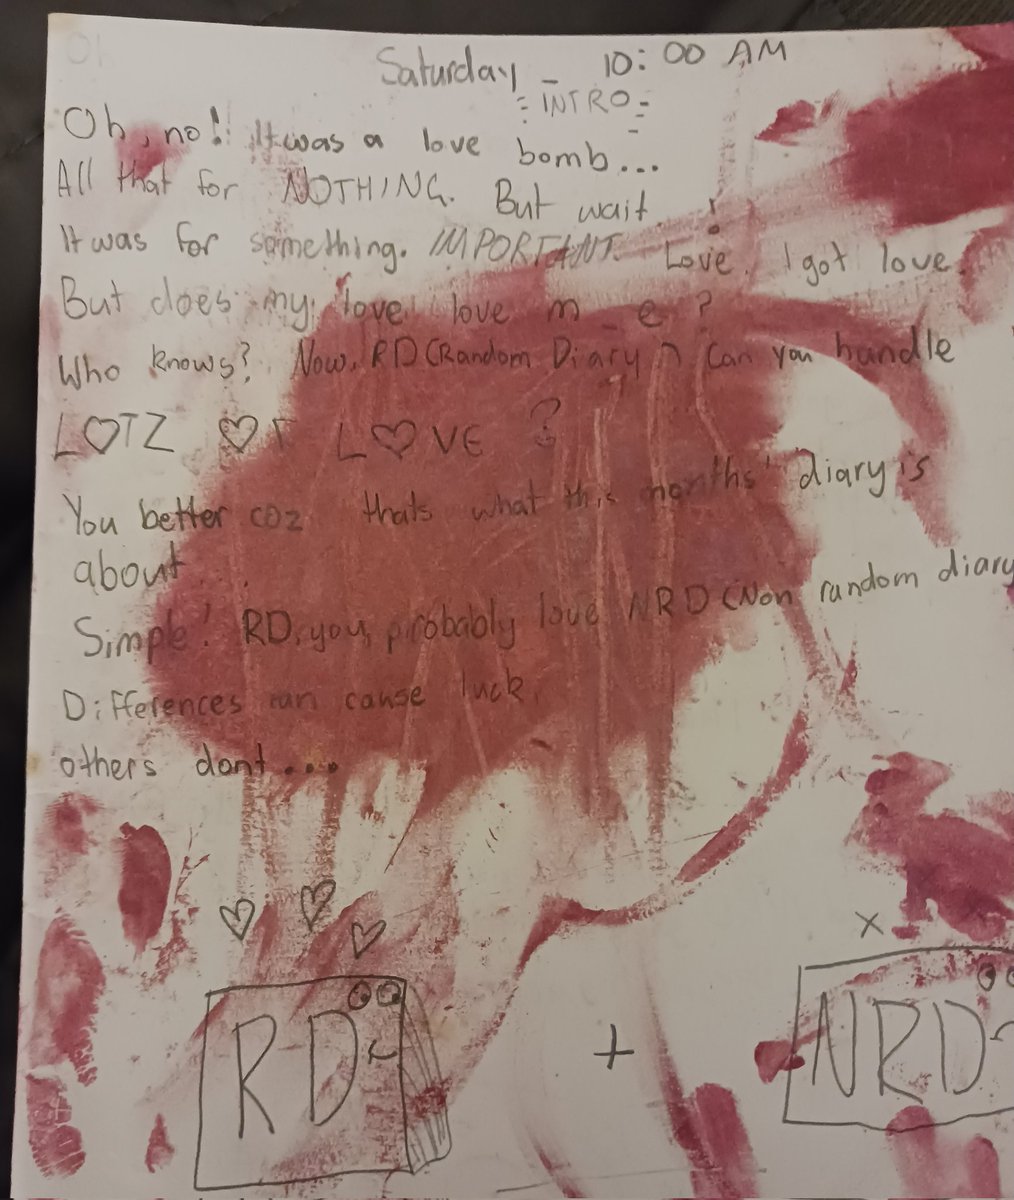 Saturday _ 10:00 AM
- INTRO -
Oh, no! It was a love bomb...
All that for NOTHING. But wait !
It was for something. IMPORTANT. Love. I got love.
But does my love love m _ e ?
Who knows? Now, RD (Random Diary) Can you handle
L♡TZ ♡F L♡VE ?
You better coz thats what this months' diary is
about...
Simple! RD, you, probably love NRD (Non random diary
Differences can cause luck,
others dont....
RD
+
x
NRD